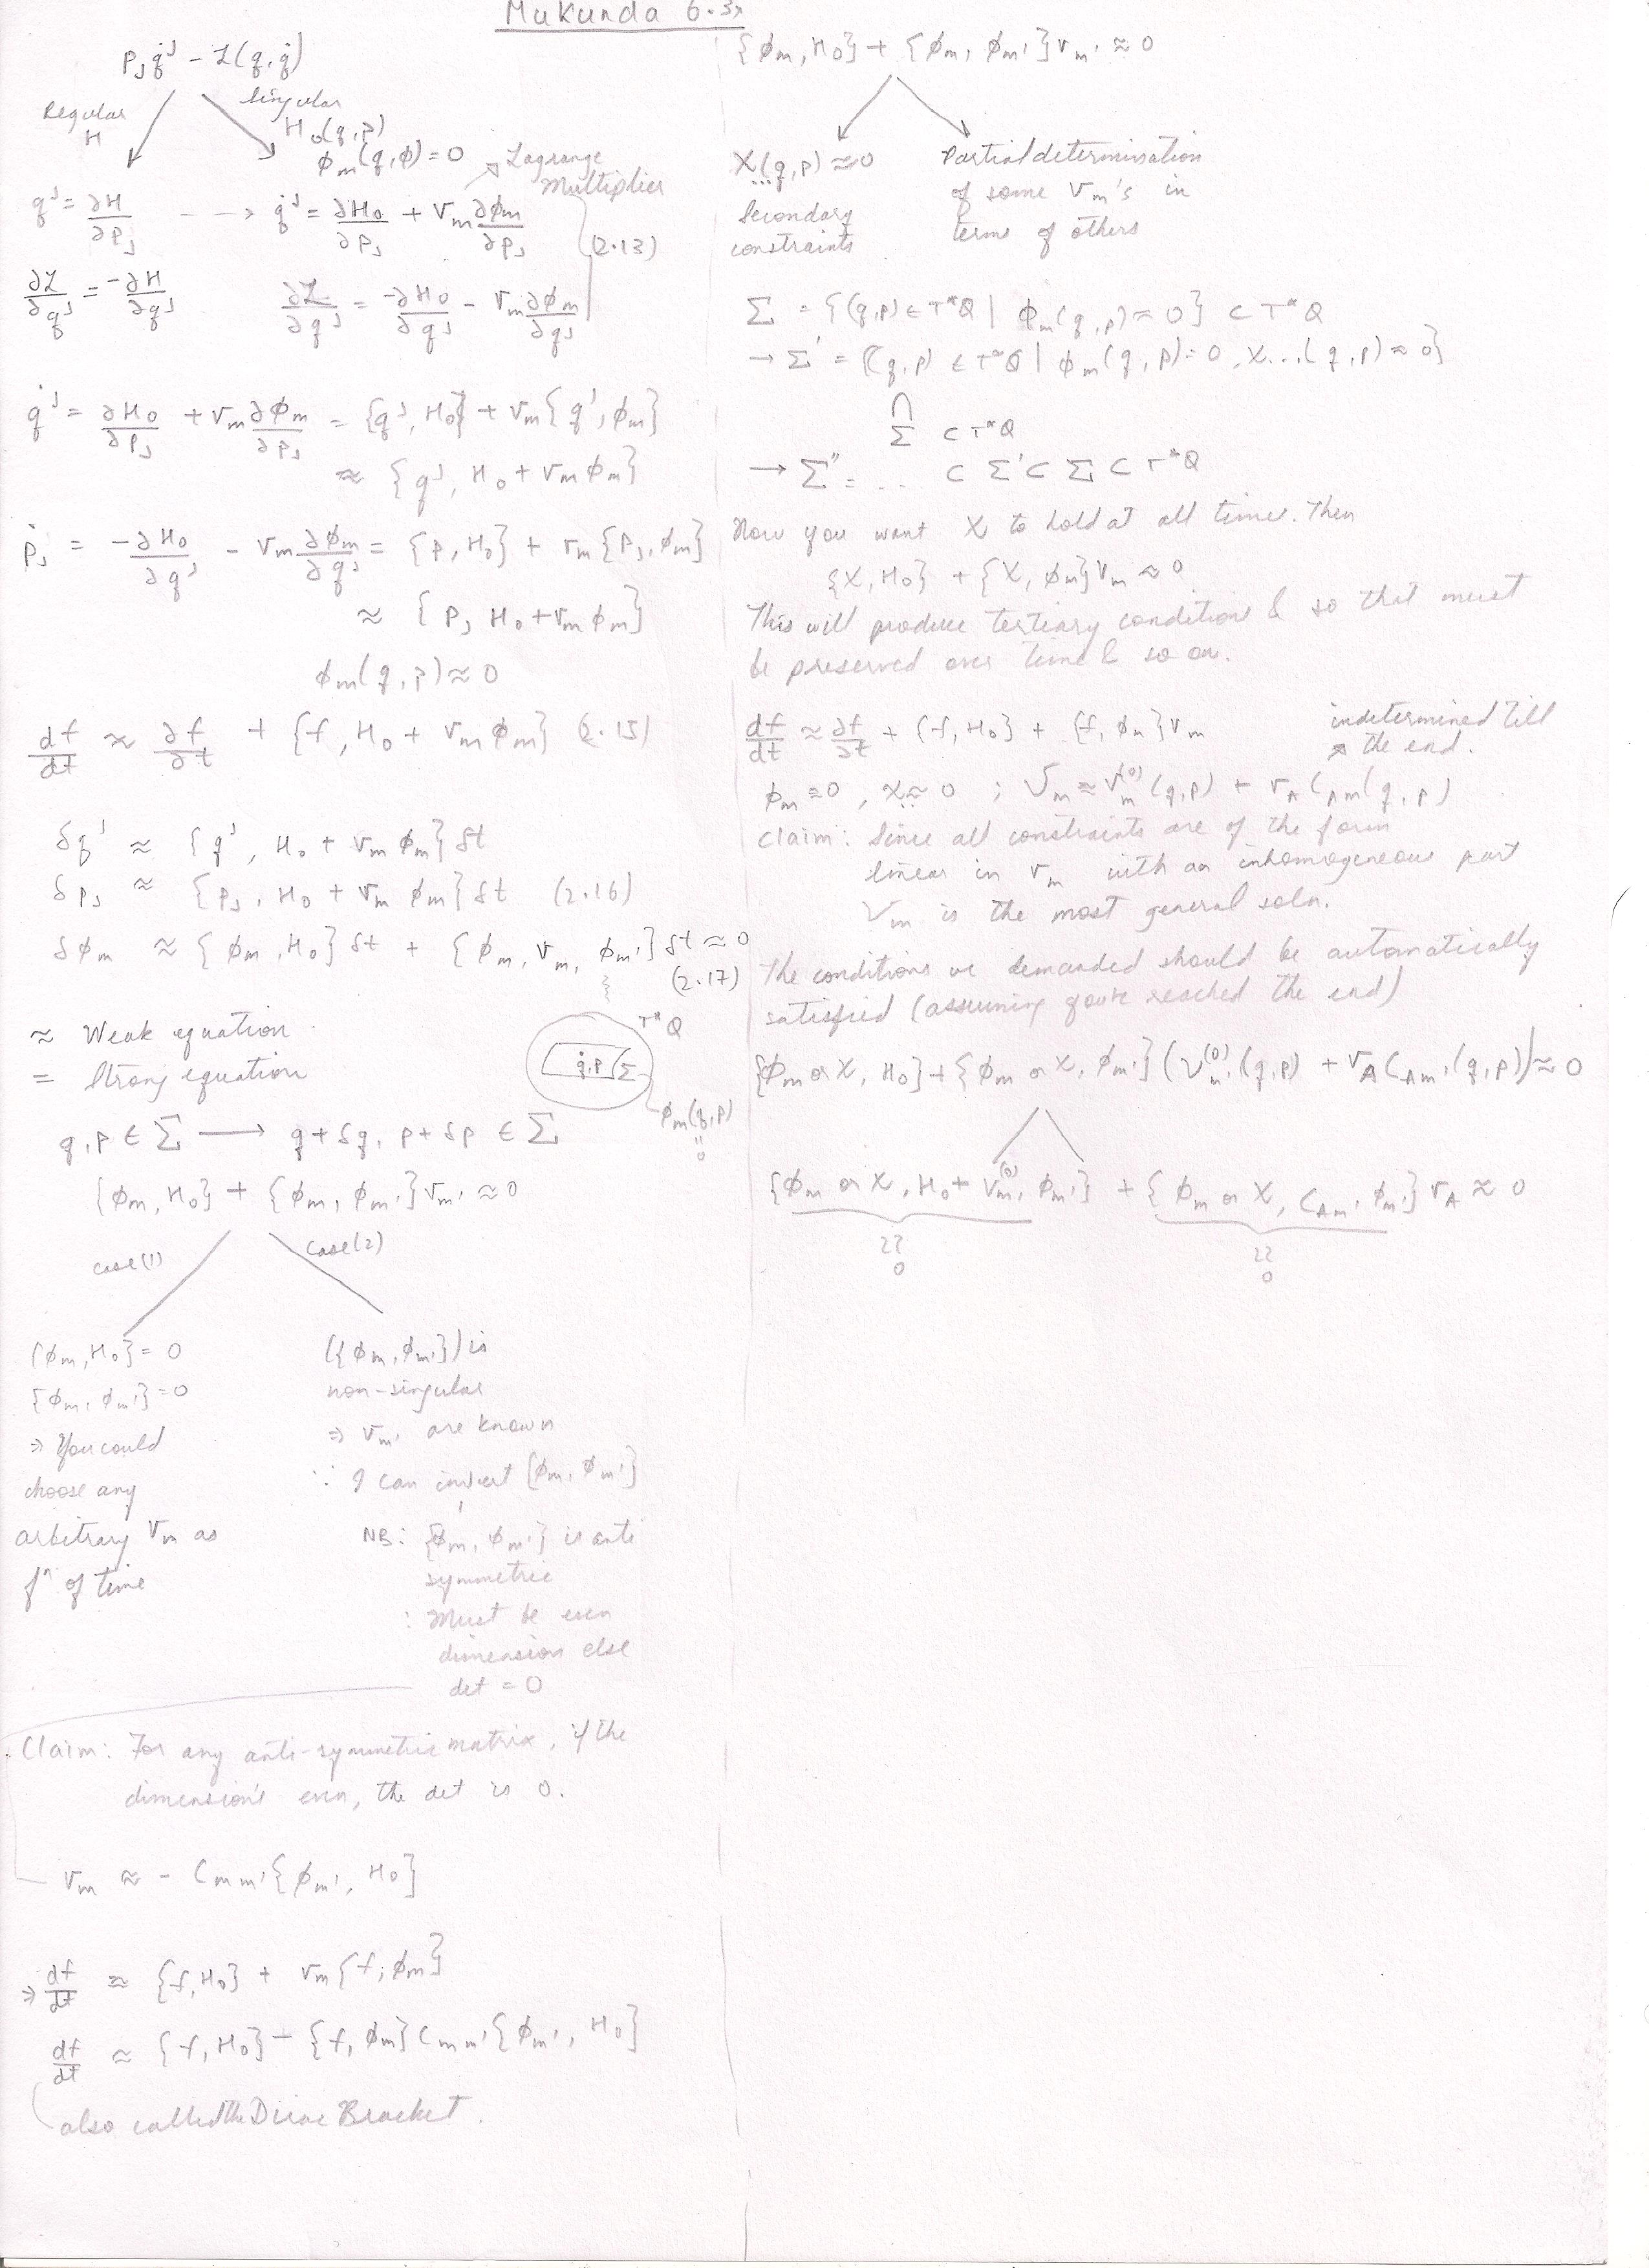 Mukunda 6.3x
p_j q̇^j − L(q, q̇)
Regular
H
Singular
H_0(q,p)
ϕ_m(q,ϕ) = 0
Lagrange
Multiplier
q̇^j = ∂H/∂p_j --→ q̇^j = ∂H_0/∂p_j + v_m ∂ϕ_m/∂p_j
(2.13)
∂L/∂q^j = −∂H/∂q^j ∂L/∂q^j = −∂H_0/∂q^j − v_m ∂ϕ_m/∂q^j
q̇^j = ∂H_0/∂p_j + v_m ∂ϕ_m/∂p_j = {q^j, H_0} + v_m{q^j, ϕ_m}
≈ {q^j, H_0 + v_m ϕ_m}
ṗ_j = −∂H_0/∂q^j − v_m ∂ϕ_m/∂q^j = {p, H_0} + v_m{p_j, ϕ_m}
≈ {p_j H_0 + v_m ϕ_m}
ϕ_m(q,p) ≈ 0
df/dt ≈ ∂f/∂t + {f, H_0 + v_m ϕ_m} (2.15)
δq^j ≈ {q^j, H_0 + v_m ϕ_m} δt
δp_j ≈ {p_j, H_0 + v_m ϕ_m} δt (2.16)
δϕ_m ≈ {ϕ_m, H_0} δt + {ϕ_m, v_m, ϕ_m'} δt ≈ 0
(2.17)
≈ Weak equation
= Strong equation
T*Q
q,p Σ
ϕ_m(q,p)
=
0
q,p ∈ Σ ⟶ q+δq, p+δp ∈ Σ
{ϕ_m, H_0} + {ϕ_m, ϕ_m'} v_m' ≈ 0
case(1)
case(2)
{ϕ_m, H_0} = 0
{ϕ_m, ϕ_m'} = 0
⇒ You could
choose any
arbitrary v_m as
fⁿ of time
({ϕ_m, ϕ_m'}) is
non-singular
⇒ v_m' are known
∵ I can invert {ϕ_m, ϕ_m'}
NB: {ϕ_m, ϕ_m'} is anti
symmetric
: Must be even
dimension else
det = 0
Claim: For any anti-symmetric matrix, if the
dimension's even, the det is 0.
v_m ≈ − C_mm' {ϕ_m', H_0}
⇒ df/dt ≈ {f, H_0} + v_m {f, ϕ_m}
df/dt ≈ {f, H_0} − {f, ϕ_m} C_mm' {ϕ_m', H_0}
also called the Dirac Bracket.
{ϕ_m, H_0} + {ϕ_m, ϕ_m'} v_m' ≈ 0
χ...(q,p) ≈ 0
Secondary
constraints
Partial determination
of some v_m's in
terms of others
Σ = {(q,p) ∈ T*Q | ϕ_m(q,p) ≈ 0} ⊂ T*Q
→ Σ' = {(q,p) ∈ T*Q | ϕ_m(q,p) = 0, χ...(q,p) ≈ 0}
∩
Σ ⊂ T*Q
→ Σ'' = ... ⊂ Σ' ⊂ Σ ⊂ T*Q
Now you want χ to hold at all times. Then
{χ, H_0} + {χ, ϕ_m} v_m ≈ 0
This will produce tertiary conditions & so that must
be preserved over time & so on.
df/dt ≈ ∂f/∂t + {f, H_0} + {f, ϕ_m} v_m
indetermined till
the end.
ϕ_m ≈ 0, χ.. ≈ 0 ; V_m ≈ V_m^(0)(q,p) + v_A C_Am(q,p)
Claim: Since all constraints are of the form
linear in v_m with an inhomogeneous part
V_m is the most general soln.
The conditions we demanded should be automatically
satisfied (assuming you've reached the end)
{ϕ_m or χ, H_0} + {ϕ_m or χ, ϕ_m'} (V_m'^(0)(q,p) + v_A C_Am'(q,p)) ≈ 0
{ϕ_m or χ, H_0 + V_m'^(0) ϕ_m'} + {ϕ_m or χ, C_Am' ϕ_m'} v_A ≈ 0
≈
0
≈
0